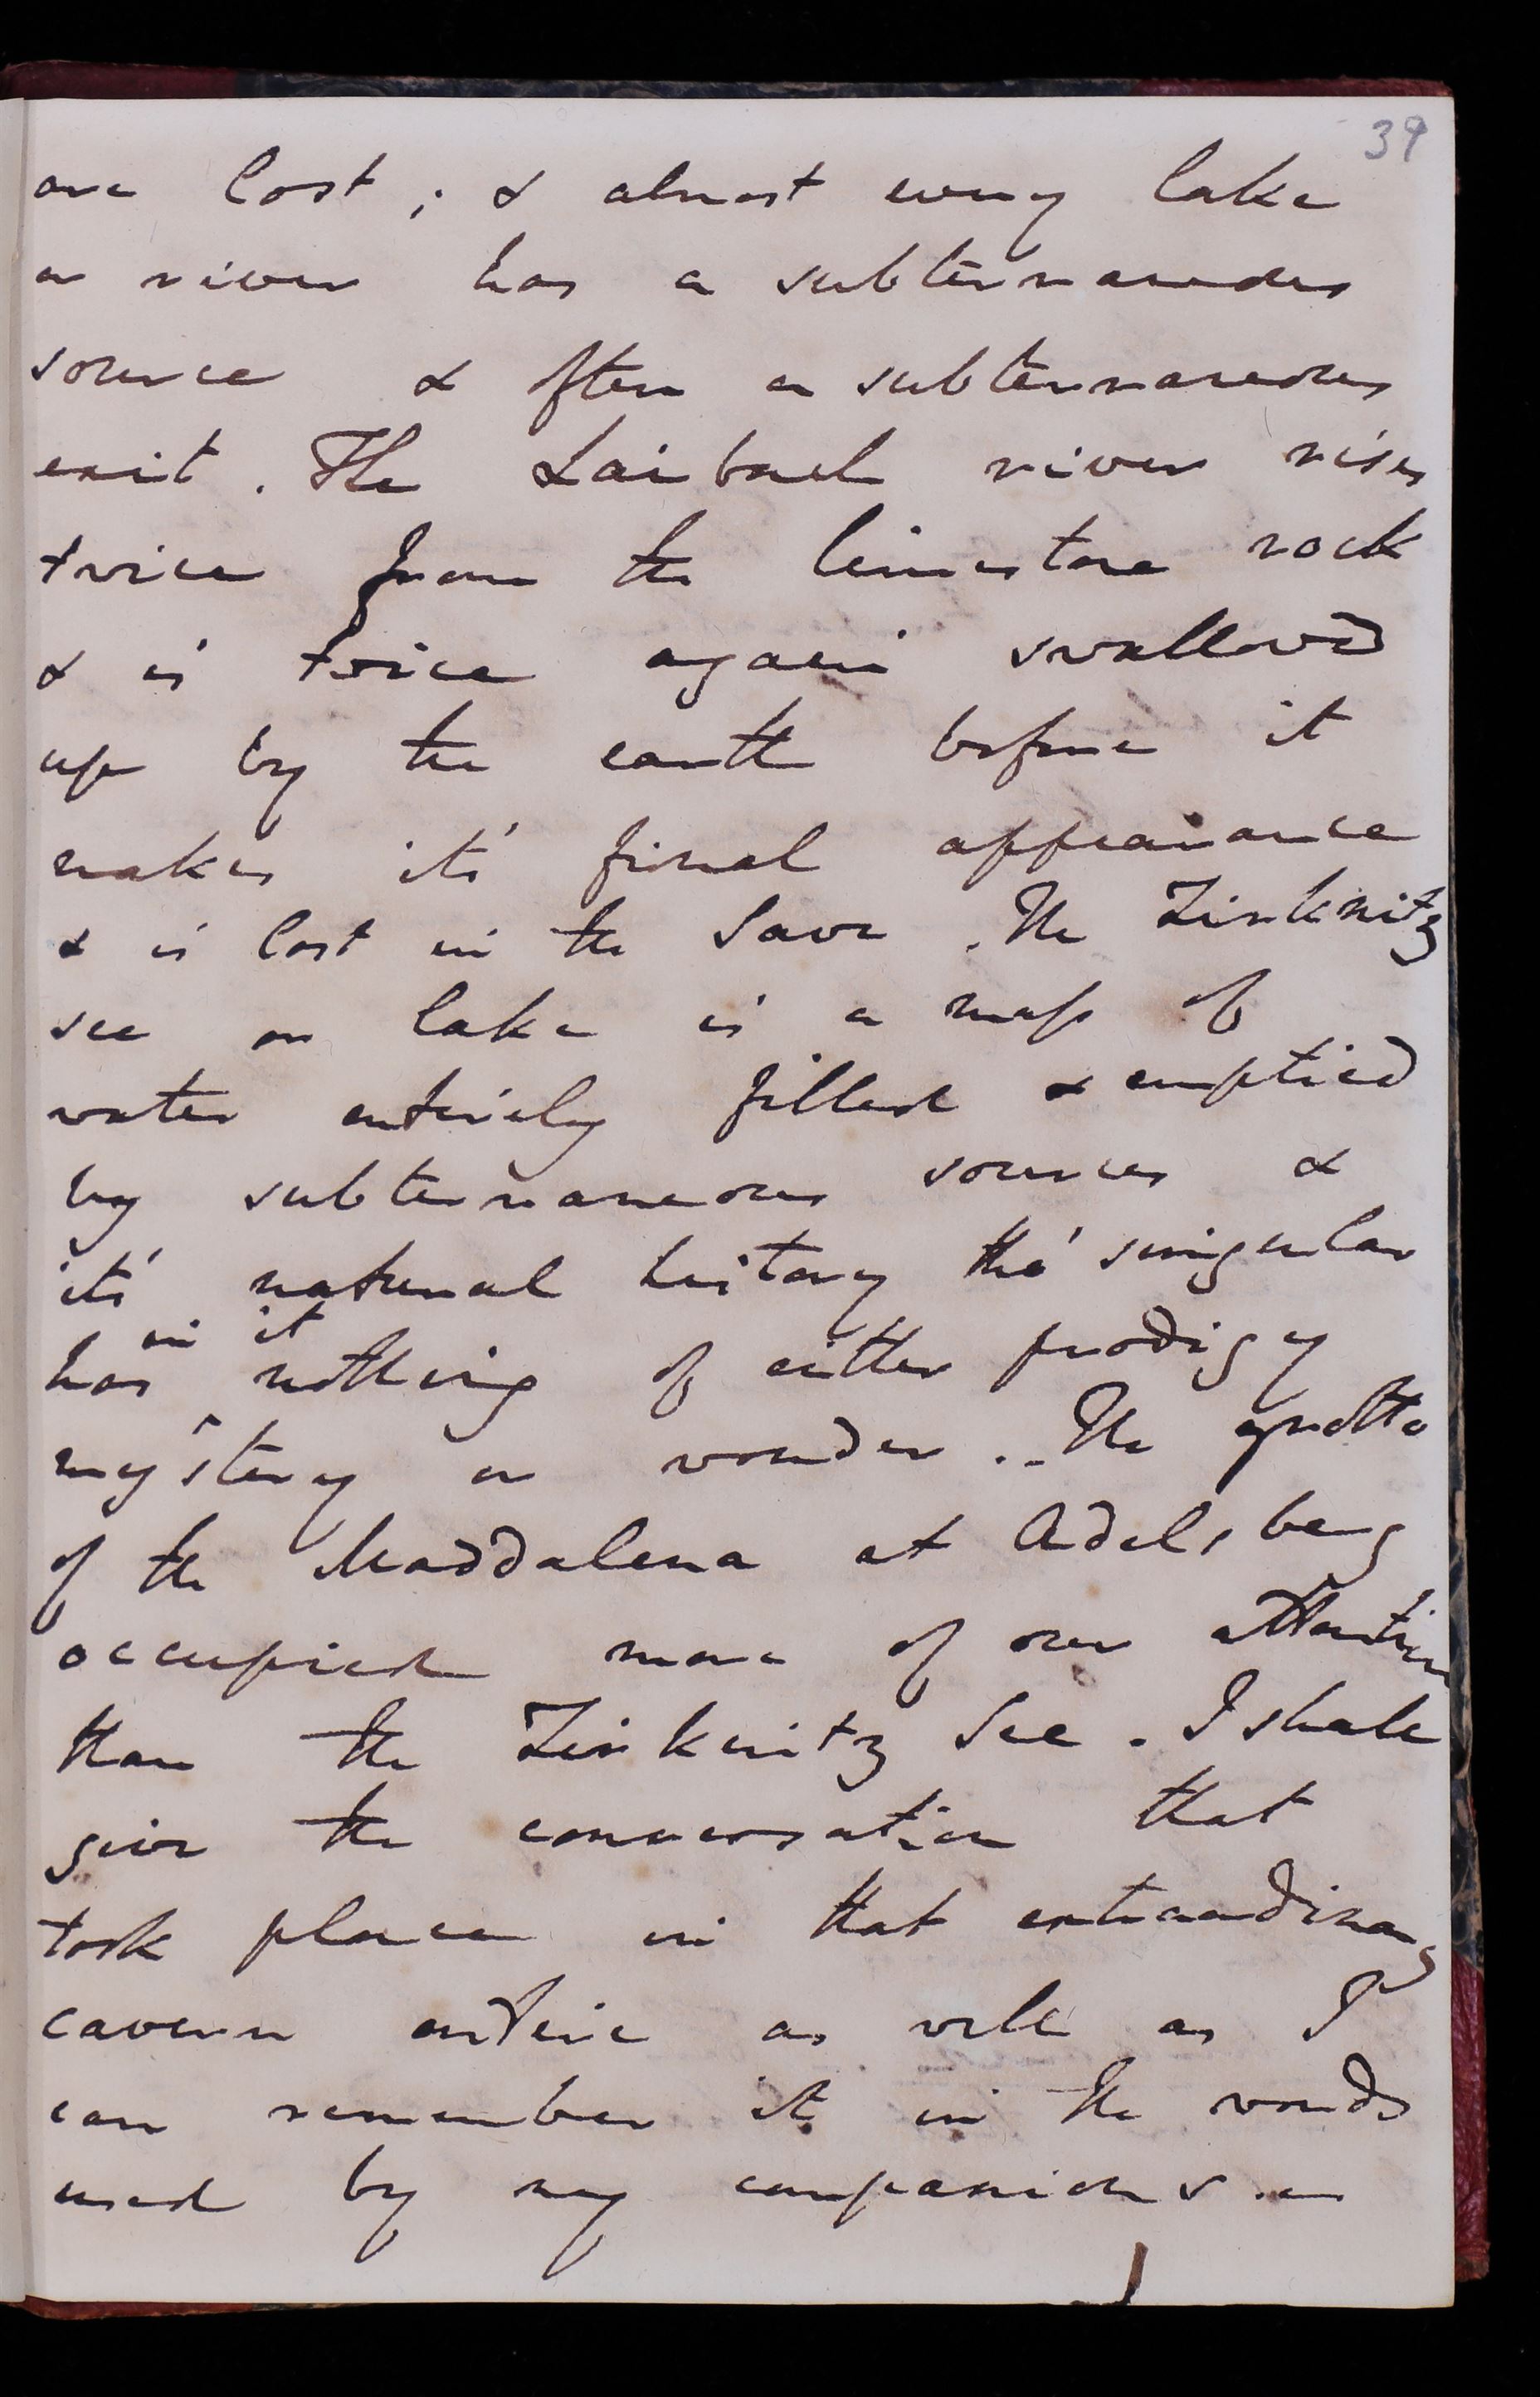 39
are lost; & almost every lake
or river has a subterraneous
source & often a subterraneous
exit. The Laibach river rises
twice from the limestone rock
& is twice again swallowed
up by the earth before it
makes it's final appearance
& is lost in the Save. The Zirknitz
see or lake is a mass of
water entirely filled & emptied
by subterraneous sources &
it's natural history tho' singular
has in it nothing of either prodigy
mystery or wonder.. The grotto
of the Maddalena at Adelsberg
occupied more of our attention
than the Zirknitz See. I shall
give the conversation that
took place in that extraordinary
cavern entire as well as I
can remember it in the words
used by my companions.–